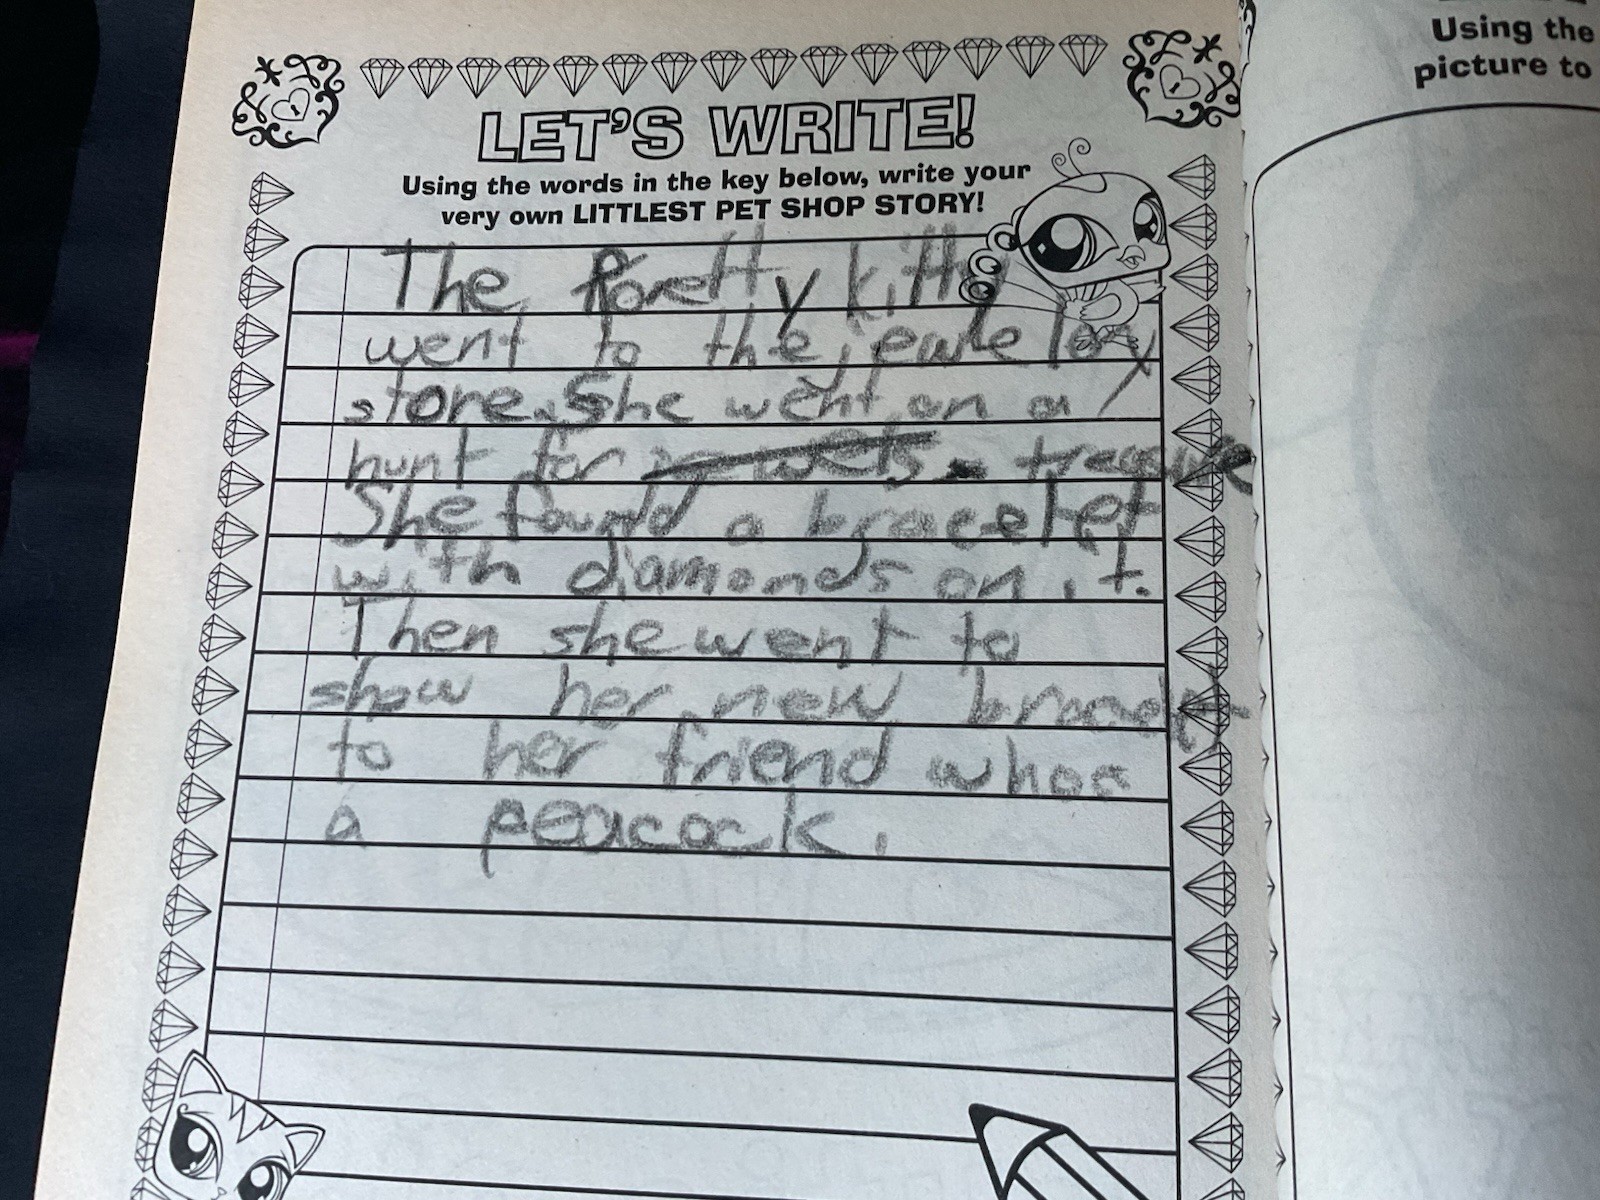 LET'S WRITE!
Using the words in the key below, write your
very own LITTLEST PET SHOP STORY!
The pretty kitty
went to the jewelery
store. She went on a
hunt for jewels. treasure
She found a bracelet
with diamonds on it.
Then she went to
show her new bracelet
to her friend whos
a peacock.
Using the
picture to